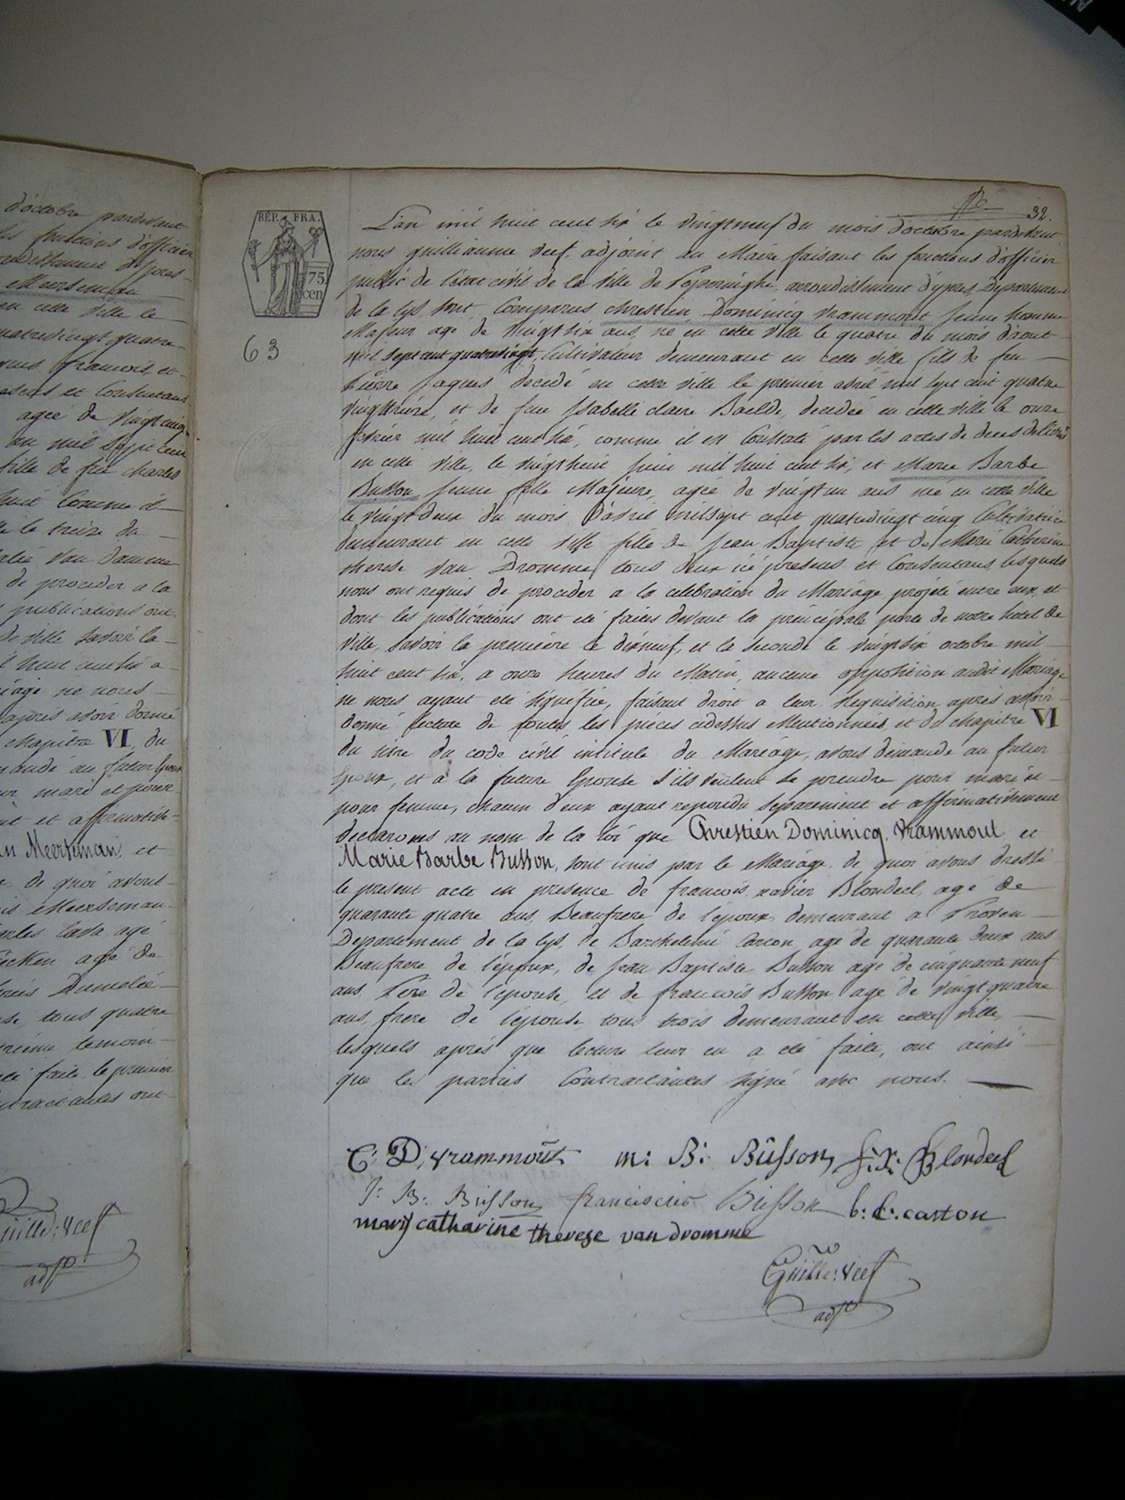 d'octobre pardevant
les fonctions d'officier
arrondissement d'ypres
Meerseman
en cette ville le
quatrevingt quatre
francois et
et Consentans
agée de vingt cinq
an mil sept cent
fille de feu charles
huit Comme il
le treize du
van Damme
de proceder a la
publications ont
de ville savoir la
huit cent six a
ne nous
après avoir donné
chapitre VI du
demandé au futur Epoux
pour mari et pour
et affirmative-
Meerseman et
de quoi avons
Meerseman
agé
agé de
Dumelié
tous quatre
faite le premier
contractantes ont
Guille: Veef
adjt
RÉP. FRA.
75
cen
63
32.
L'an mil huit cent six le vingtneuf du mois d'octobre pardevant
nous guillaume veef, adjoint au Maire faisant les fonctions d'officier
public de l'état civil de la ville de Poperinghe, arrondissement d'ypres Departement
de la lys sont Comparus chrestien Dominicq vrammout jeune homme
Majeur agé de vingt six ans, né en cette ville le quatre du mois d'aout
mil sept cent quatrevingt, Cultivateur demeurant en cette ville fils de feu
Pierre Jaques decedé en cette ville le premier avril mil sept cent quatre
vingttreize, et de feue Isabelle claire Baelde, decedée en cette ville le onze
fevrier mil huit cent six, comme il est Constaté par les actes de deces delivrés
en cette ville, le vingthuit juin mil huit cent six, et Marie Barbe
Busson jeune fille Majeure, agée de vingt un ans née en cette ville
le vingt deux du mois d'avril mil sept cent quatrevingt cinq Cultivatrice
demeurant en cette ville fille de Jean Baptiste et de Marie Catherine
therese van Dromme tous deux ici présens et Consentans lesquels
nous ont requis de procéder a la celebration du Mariage projeté entre eux et
dont les publications ont été faites devant la principale porte de notre hotel de
ville, savoir la premiere le dixneuf, et la seconde le vingtsix octobre mil
huit cent six, a onze heures du Matin, aucune opposition audit Mariage
ne nous ayant été signifiée, faisant droit a leur requisition, après avoir
donné lecture de toutes les pièces cidessus Mentionnées et du chapitre VI
du titre du code civil intitulé du Mariage, avons demandé au futur
Epoux, et à la future Epouse s'ils veulent se prendre pour mari et
pour femme, chacun d'eux ayant repondu séparement et affirmativement
declarons au nom de la loi que Chrestien Dominicq Vrammout et
Marie Barbe Busson, sont unis par le Mariage de quoi avons dressé
le present acte en presence de francois xavier Blondeel, agé de
quarante quatre ans Beaufrere de l'epoux demeurant a Proven
Departement de la lys, de Barthelemi Carton, agé de quarante deux ans
Beaufrere de l'époux, de Jean Baptiste Busson agé de cinquante neuf
ans Pere de l'épouse, et de francois Busson agé de vingt quatre
ans, frere de l'épouse tous trois demeurant en cette ville,
lesquels après que lecture leur en a été faite, ont ainsi
que les parties Contractantes signé avec nous.
C: D, vrammout m: B: Busson f: x: Blondeel
J: B: Busson franciscus Busson b: C: carton
marij catharine therese van dromme
Guille: Veef
adjt